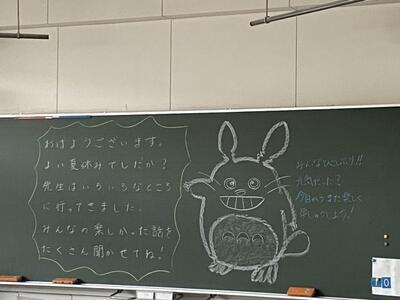 おはようございます。
よい夏休みでしたか？
先生はいろいろなところ
に行ってきました。
みんなの楽しかった話を
たくさん聞かせてね！
みんなひさしぶり!!
元気だった？
今日からまた楽しく